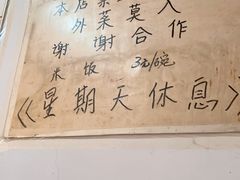 本店
外菜莫入
谢谢合作
米饭 3元/碗
《星期天休息》